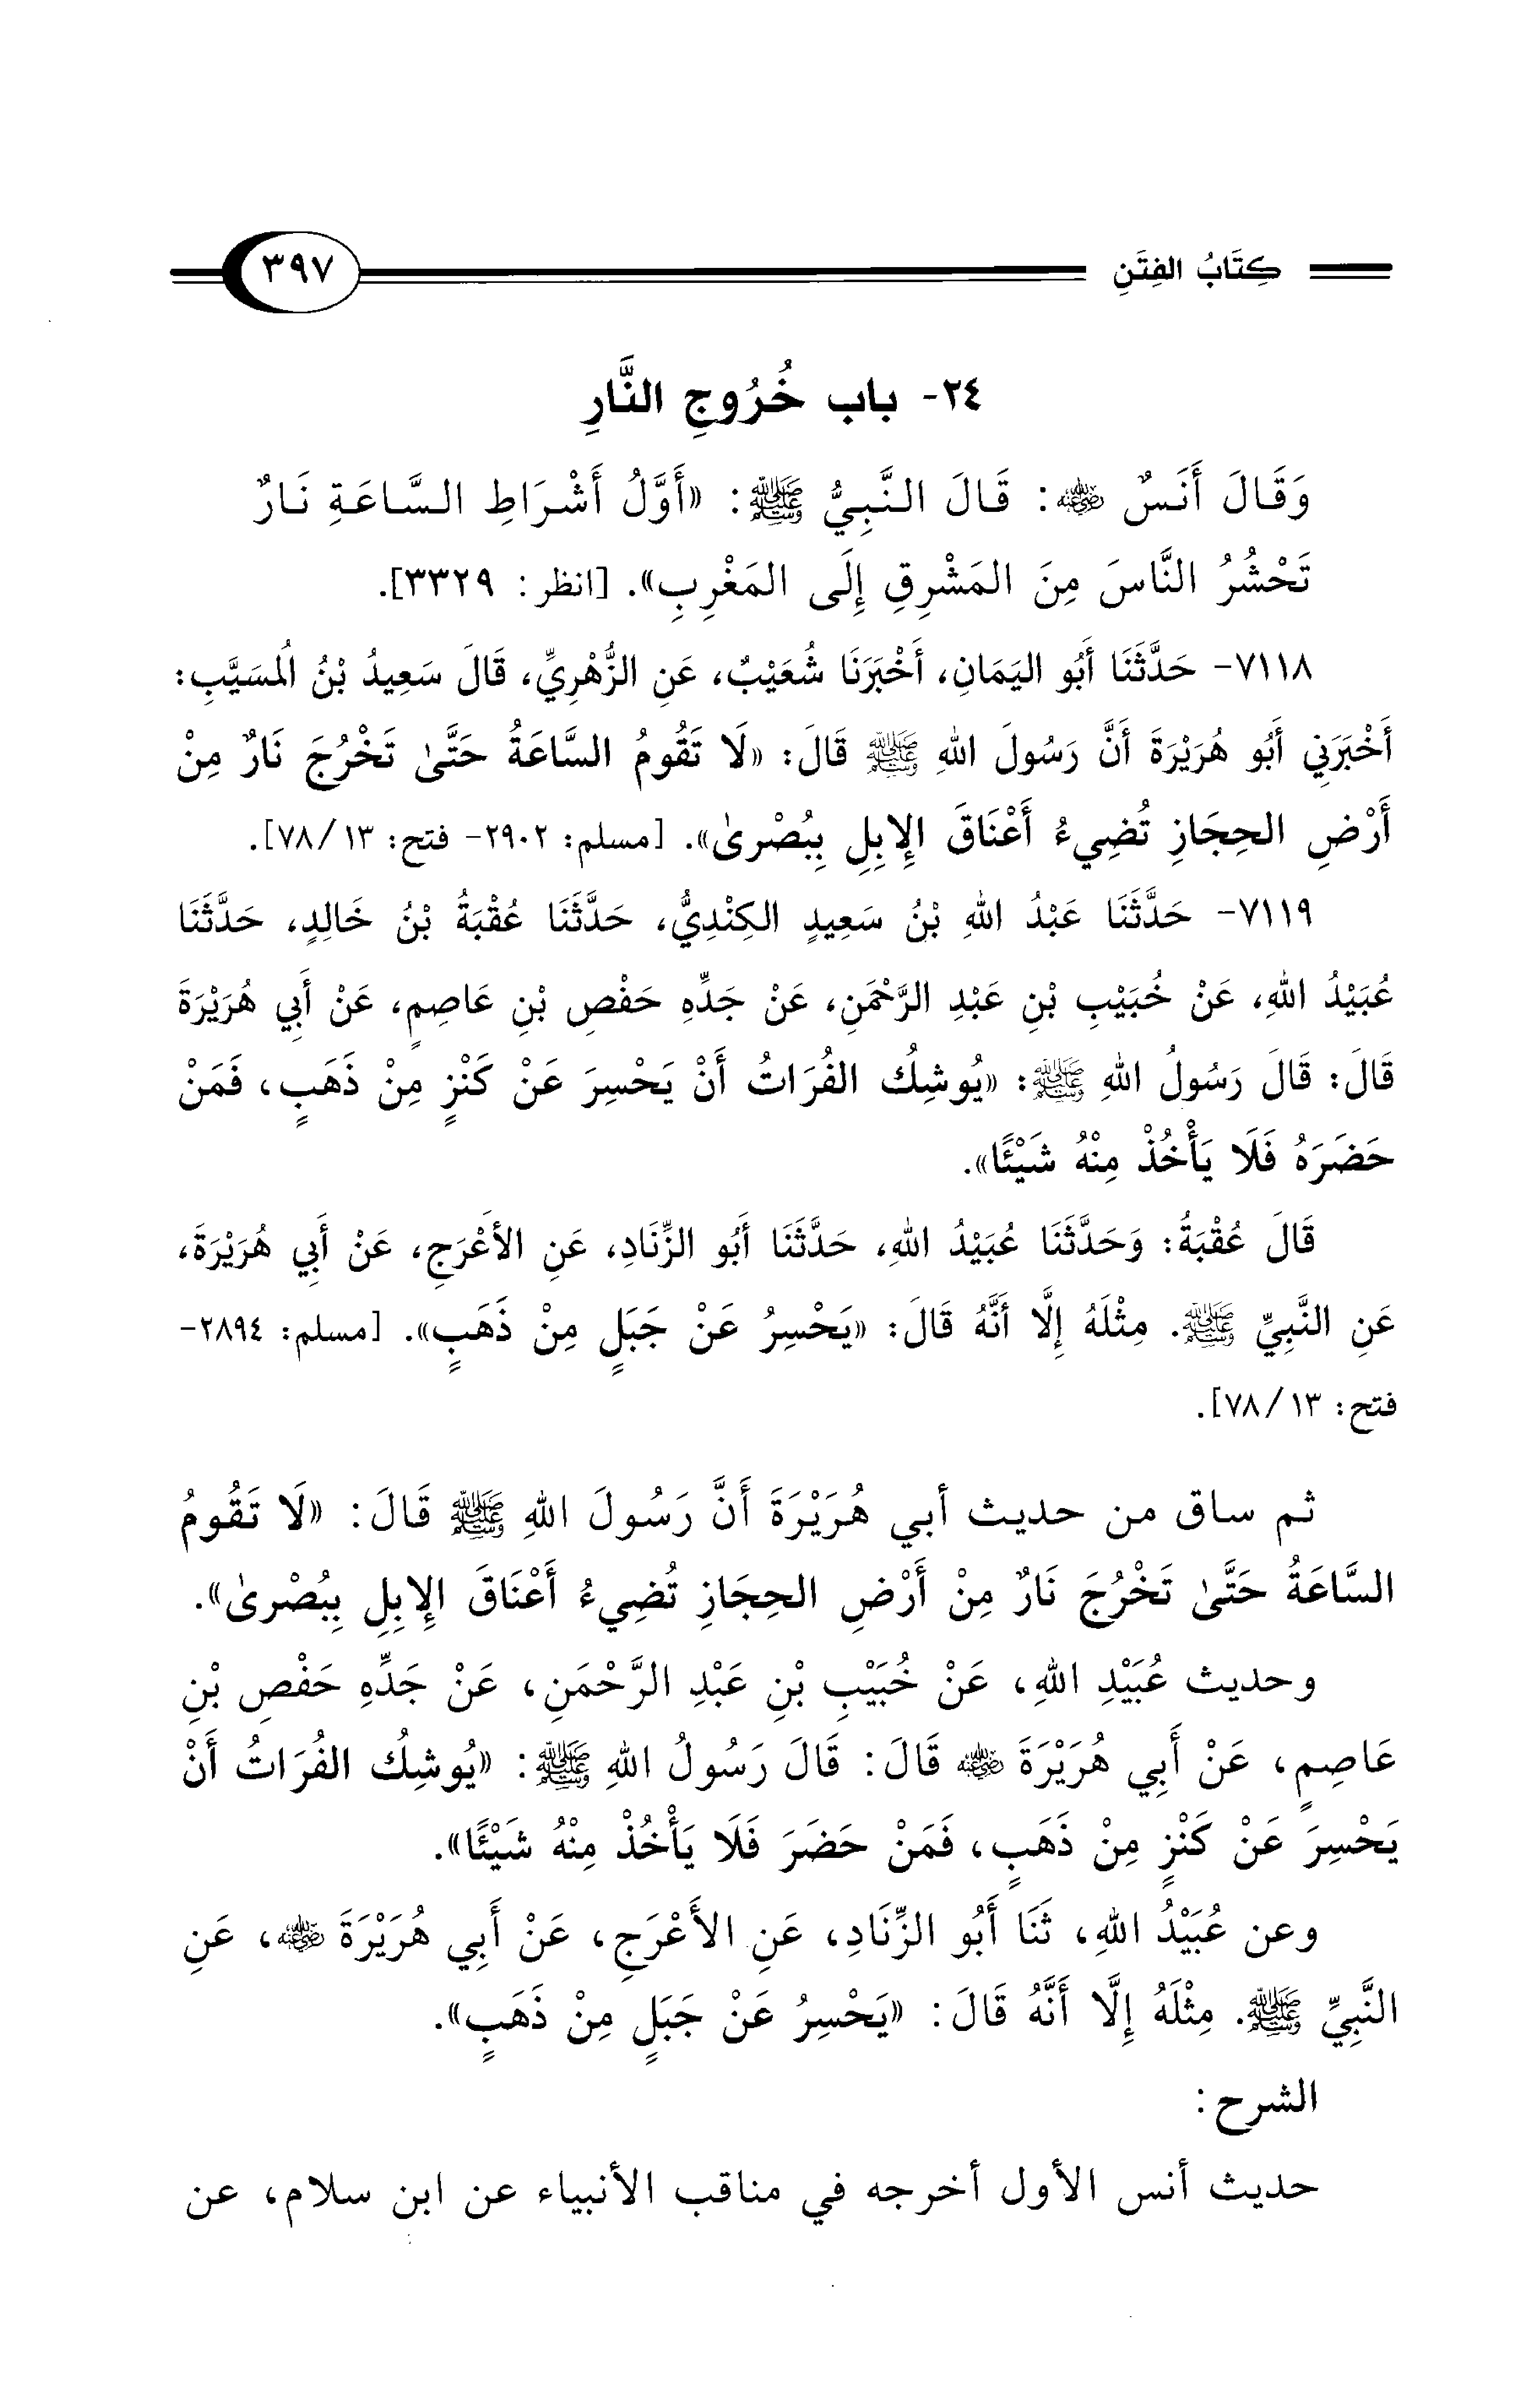 كِتَابُ الفِتَنِ ٣٩٧
٢٤- باب خُرُوجِ النَّارِ
وَقَالَ أَنَسٌ ﵁: قَالَ النَّبِيُّ ﷺ: «أَوَّلُ أَشْرَاطِ السَّاعَةِ نَارٌ
تَحْشُرُ النَّاسَ مِنَ المَشْرِقِ إِلَى المَغْرِبِ». [انظر: ٣٣٢٩].
٧١١٨- حَدَّثَنَا أَبُو اليَمَانِ، أَخْبَرَنَا شُعَيْبٌ، عَنِ الزُّهْرِيِّ، قَالَ سَعِيدُ بْنُ الُمسَيَّبِ:
أَخْبَرَنِي أَبُو هُرَيْرَةَ أَنَّ رَسُولَ اللهِ ﷺ قَالَ: «لَا تَقُومُ السَّاعَةُ حَتَّىٰ تَخْرُجَ نَارٌ مِنْ
أَرْضِ الحِجَازِ تُضِيءُ أَعْنَاقَ الإِبِلِ بِبُصْرىٰ». [مسلم: ٢٩٠٢- فتح: ١٣/ ٧٨].
٧١١٩- حَدَّثَنَا عَبْدُ اللهِ بْنُ سَعِيدٍ الكِنْدِيُّ، حَدَّثَنَا عُقْبَةُ بْنُ خَالِدٍ، حَدَّثَنَا
عُبَيْدُ اللهِ، عَنْ خُبَيْبِ بْنِ عَبْدِ الرَّحْمَنِ، عَنْ جَدِّهِ حَفْصِ بْنِ عَاصِمٍ، عَنْ أَبِي هُرَيْرَةَ
قَالَ: قَالَ رَسُولُ اللهِ ﷺ: «يُوشِكُ الفُرَاتُ أَنْ يَحْسِرَ عَنْ كَنْزٍ مِنْ ذَهَبٍ، فَمَنْ
حَضَرَهُ فَلَا يَأْخُذْ مِنْهُ شَيْئًا».
قَالَ عُقْبَةُ: وَحَدَّثَنَا عُبَيْدُ اللهِ، حَدَّثَنَا أَبُو الزِّنَادِ، عَنِ الأَعْرَجِ، عَنْ أَبِي هُرَيْرَةَ،
عَنِ النَّبِيِّ ﷺ. مِثْلَهُ إِلَّا أَنَّهُ قَالَ: «يَحْسِرُ عَنْ جَبَلٍ مِنْ ذَهَبٍ». [مسلم: ٢٨٩٤-
فتح: ١٣/ ٧٨].
ثم ساق من حديث أبي هُرَيْرَةَ أَنَّ رَسُولَ اللهِ ﷺ قَالَ: «لَا تَقُومُ
السَّاعَةُ حَتَّىٰ تَخْرُجَ نَارٌ مِنْ أَرْضِ الحِجَازِ تُضِيءُ أَعْنَاقَ الإِبِلِ بِبُصْرىٰ».
وحديث عُبَيْدِ اللهِ، عَنْ خُبَيْبِ بْنِ عَبْدِ الرَّحْمَنِ، عَنْ جَدِّهِ حَفْصِ بْنِ
عَاصِمٍ، عَنْ أَبِي هُرَيْرَةَ ﵁ قَالَ: قَالَ رَسُولُ اللهِ ﷺ: «يُوشِكُ الفُرَاتُ أَنْ
يَحْسِرَ عَنْ كَنْزٍ مِنْ ذَهَبٍ، فَمَنْ حَضَرَ فَلَا يَأْخُذْ مِنْهُ شَيْئًا».
وعن عُبَيْدُ اللهِ، ثَنَا أَبُو الزِّنَادِ، عَنِ الأَعْرَجِ، عَنْ أَبِي هُرَيْرَةَ ﵁، عَنِ
النَّبِيِّ ﷺ. مِثْلَهُ إِلَّا أَنَّهُ قَالَ: «يَحْسِرُ عَنْ جَبَلٍ مِنْ ذَهَبٍ».
الشرح:
حديث أنس الأول أخرجه في مناقب الأنبياء عن ابن سلام، عن